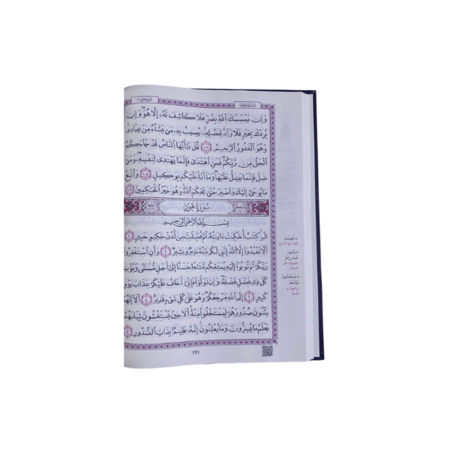 وَإِن يَمْسَسْكَ ٱللَّهُ بِضُرٍّ فَلَا كَاشِفَ لَهُۥٓ إِلَّا هُوَ ۖ وَإِن
يُرِدْكَ بِخَيْرٍ فَلَا رَآدَّ لِفَضْلِهِۦ ۚ يُصِيبُ بِهِۦ مَن يَشَآءُ مِنْ عِبَادِهِۦ ۚ
وَهُوَ ٱلْغَفُورُ ٱلرَّحِيمُ ١٠٧ قُلْ يَـٰٓأَيُّهَا ٱلنَّاسُ قَدْ جَآءَكُمُ
ٱلْحَقُّ مِن رَّبِّكُمْ ۖ فَمَنِ ٱهْتَدَىٰ فَإِنَّمَا يَهْتَدِى لِنَفْسِهِۦ ۖ وَمَن
ضَلَّ فَإِنَّمَا يَضِلُّ عَلَيْهَا ۖ وَمَآ أَنَا۠ عَلَيْكُم بِوَكِيلٍ ١٠٨ وَٱتَّبِعْ
مَا يُوحَىٰٓ إِلَيْكَ وَٱصْبِرْ حَتَّىٰ يَحْكُمَ ٱللَّهُ ۚ وَهُوَ خَيْرُ ٱلْحَـٰكِمِينَ ١٠٩
سُورَةُ هُودٍ
بِسْمِ ٱللَّهِ ٱلرَّحْمَـٰنِ ٱلرَّحِيمِ
الٓر ۚ كِتَـٰبٌ أُحْكِمَتْ ءَايَـٰتُهُۥ ثُمَّ فُصِّلَتْ مِن لَّدُنْ حَكِيمٍ خَبِيرٍ ١
أَلَّا تَعْبُدُوٓا۟ إِلَّا ٱللَّهَ ۚ إِنَّنِى لَكُم مِّنْهُ نَذِيرٌ وَبَشِيرٌ ٢ وَأَنِ ٱسْتَغْفِرُوا۟
رَبَّكُمْ ثُمَّ تُوبُوٓا۟ إِلَيْهِ يُمَتِّعْكُم مَّتَـٰعًا حَسَنًا إِلَىٰٓ أَجَلٍ مُّسَمًّى وَيُؤْتِ
كُلَّ ذِى فَضْلٍ فَضْلَهُۥ ۖ وَإِن تَوَلَّوْا۟ فَإِنِّىٓ أَخَافُ عَلَيْكُمْ عَذَابَ يَوْمٍ
كَبِيرٍ ٣ إِلَى ٱللَّهِ مَرْجِعُكُمْ ۖ وَهُوَ عَلَىٰ كُلِّ شَىْءٍ قَدِيرٌ ٤ أَلَآ إِنَّهُمْ
يَثْنُونَ صُدُورَهُمْ لِيَسْتَخْفُوا۟ مِنْهُ ۚ أَلَا حِينَ يَسْتَغْشُونَ ثِيَابَهُمْ
يَعْلَمُ مَا يُسِرُّونَ وَمَا يُعْلِنُونَ ۚ إِنَّهُۥ عَلِيمٌۢ بِذَاتِ ٱلصُّدُورِ ٥
٢٢١